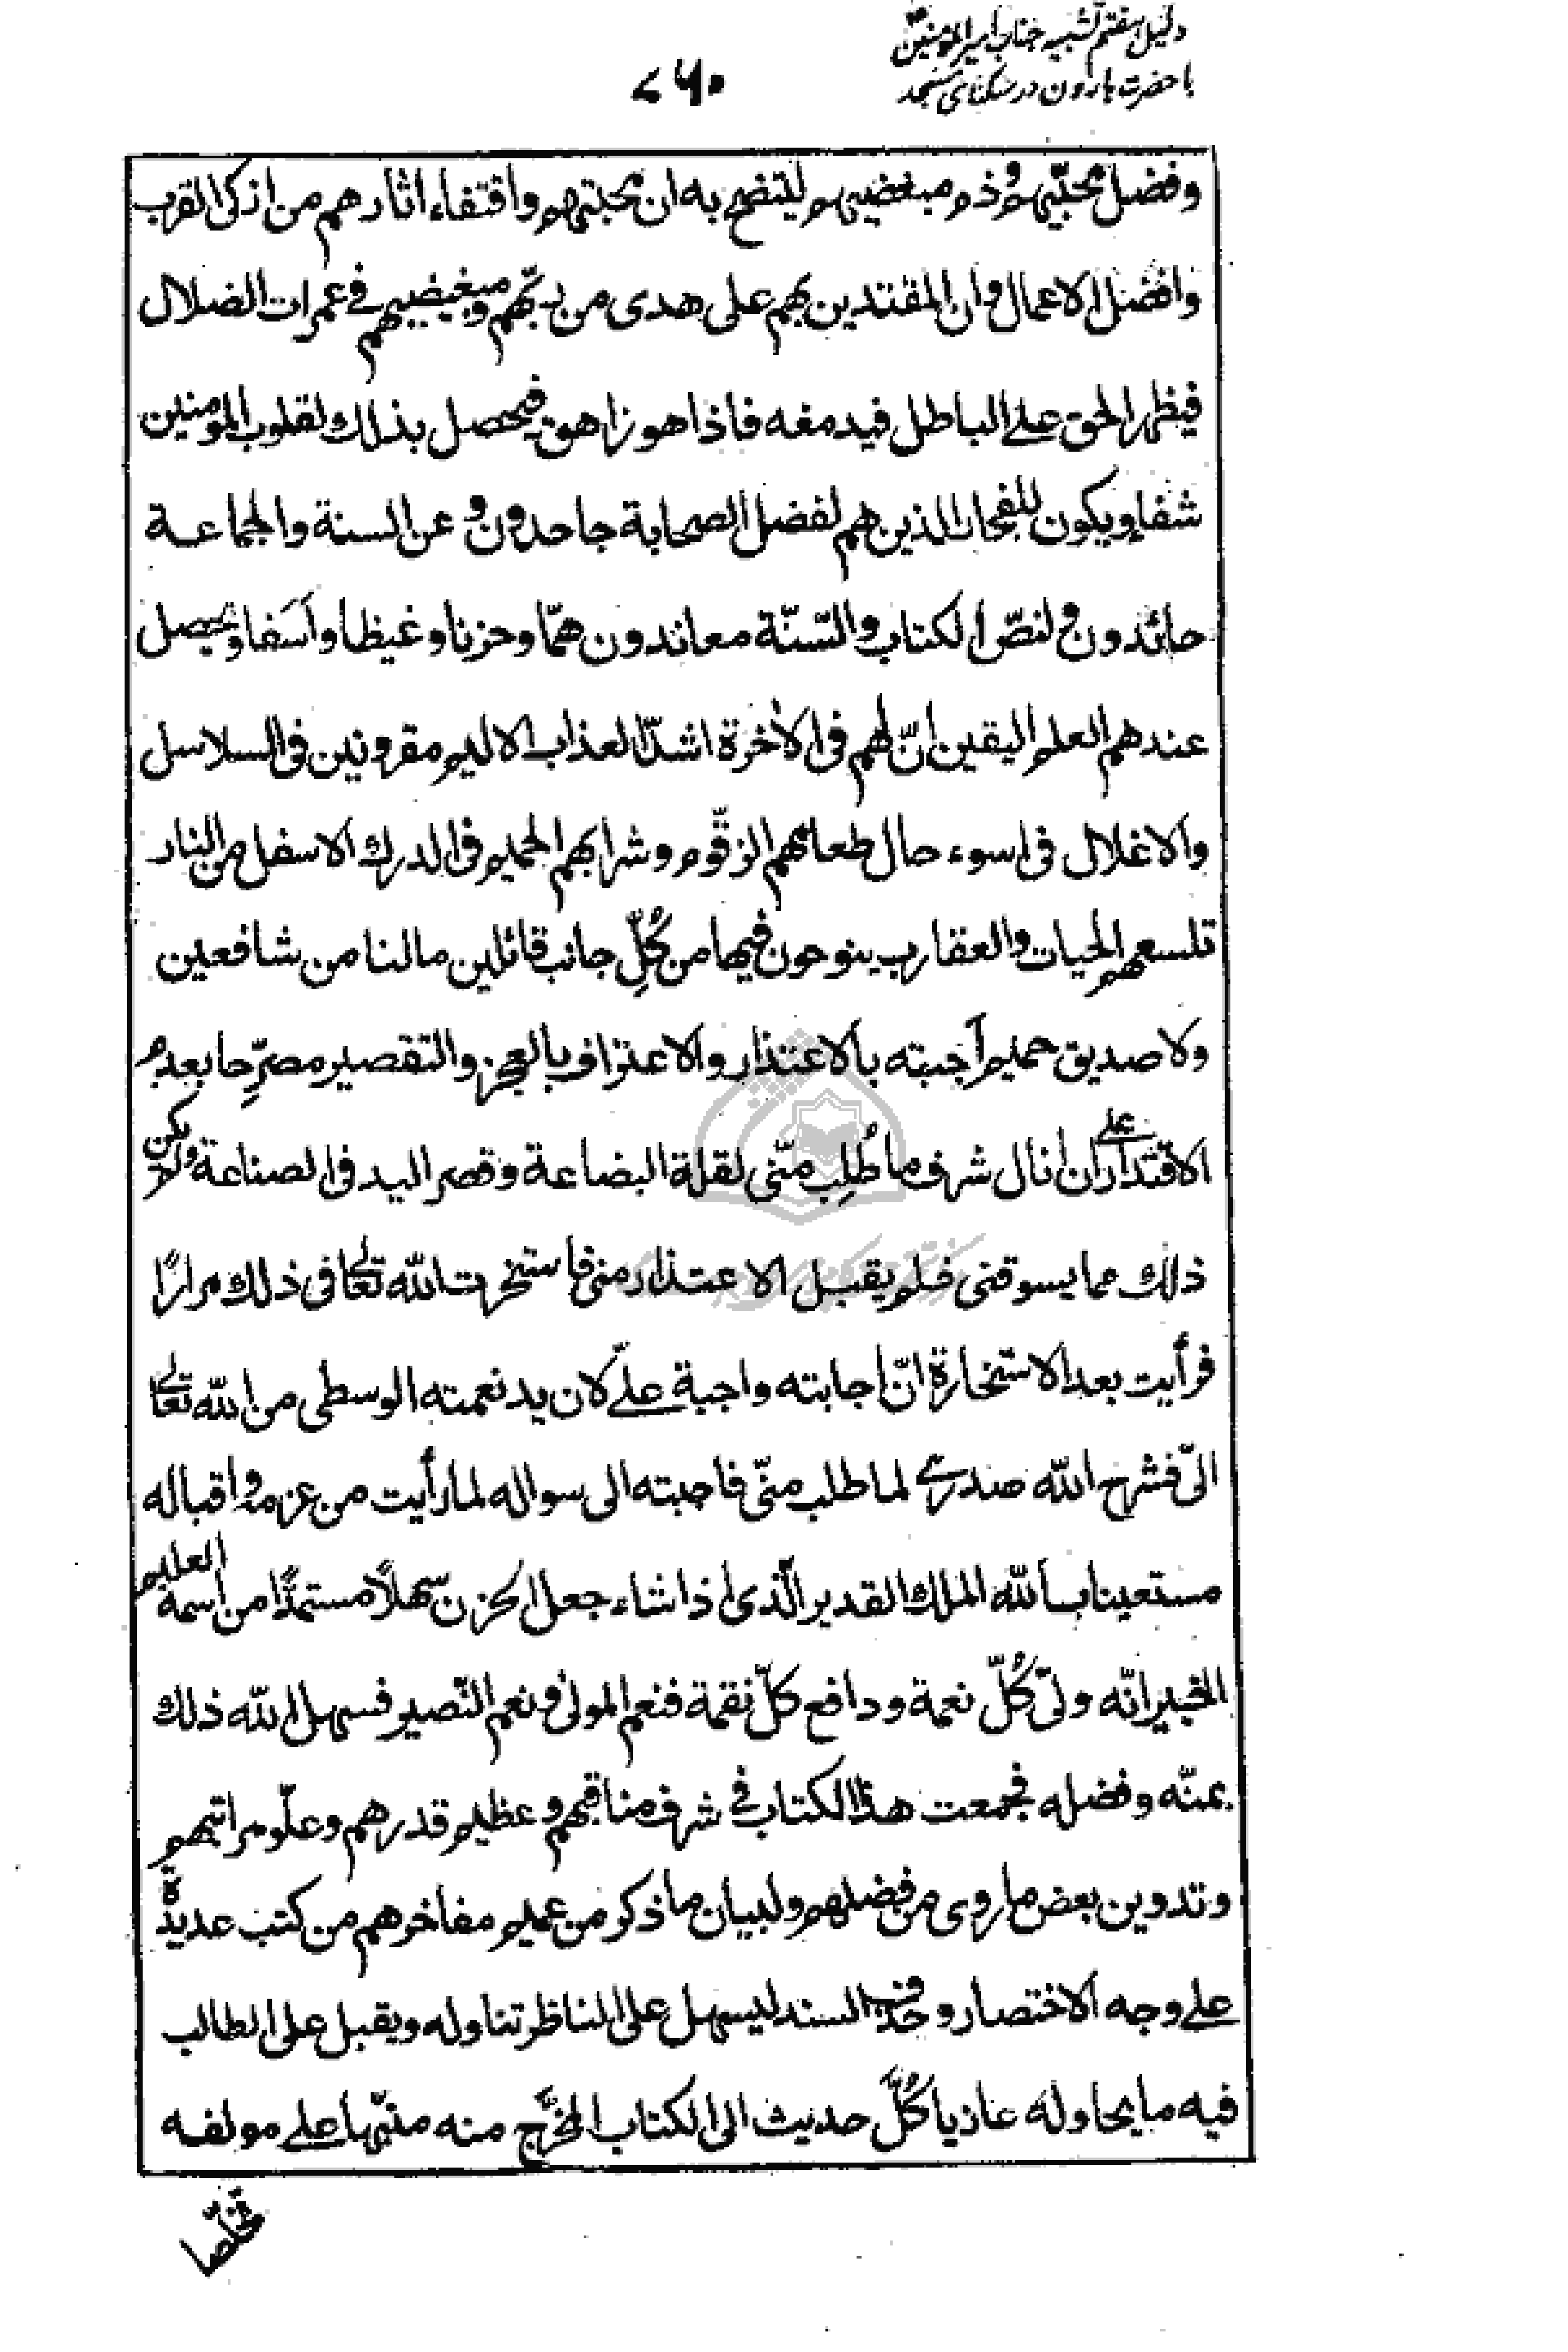 دلیل هفتم تشبیه جناب امیر المومنین
با حضرت هارون در سکنای مسجد
۷۶۰
وفضل محبّيهم وذم مبغضيهم ليتضح به ان محبتهم واقتفاء اثارهم من ازكى القرب
وافضل الاعمال وان المقتدين بهم على هدى من ربّهم ومبغضيهم فى غمرات الضلال
فيظهر الحق على الباطل فيدمغه فاذا هو زاهق فيحصل بذلك لقلوب المومنين
شفاء ويكون للفجار الذين هم لفضل الصحابة جاحدون و عن السنة والجماعة
حائدون ولنصّ الكتاب والسّنّة معاندون همّا وحزنا وغيظا واَسَفا ويحصل
عندهم العلم اليقين انّ لهم فى الاخرة اشدّ العذاب الاليم مقرونين فى السلاسل
والاغلال فى اسوء حال طعامهم الزقّوم وشرابهم الحميم فى الدرك الاسفل من النار
تلسعهم الحيات والعقارب ينوحون فيها من كُلِّ جانب قائلين مالنا من شافعين
ولا صديق حميم اَجبته بالاعتذار والاعتراف بالعجز والتقصير مصرِّحا بعدم
الاقتدار على ان انال شرف ما طُلِب منّى لقلة البضاعة وقصر اليد فى الصناعة ولم يكن
ذلك مما يسوقنى فلم يقبل الاعتذار منى فاستخرت الله تعالى فى ذلك مرارًا
فرأيت بعد الاستخارة انّ اجابته واجبة علىّ كان يد نعمته الوسطى من الله تعالى
الىّ فشرح الله صدرى لما طلب منّى فاجبته الى سواله لما رأيت من عزمه واقباله
مستعينا بالله الملك القدير الّذى اذا شاء جعل الحزن سهلًا مستمدًّا من اسمه العليم
الخبير انّه ولىّ كُلّ نعمة ودافع كلّ نقمة فنعم المولى ونعم النّصير فسهل الله ذلك
بمنّه وفضله فجمعت هذا الكتاب فى شرف مناقبهم وعظيم قدرهم وعلّو مراتبهم
وتدوين بعض ما روى من فضلهم ولبيان ما ذكر من عميم مفاخرهم من كتب عديدة
على وجه الاختصار وحذف السند ليسهل على الناظر تناوله ويقبل على الطالب
فيه ما يحاوله عازيا كُلَّ حديث الى الكتاب المخرّج منه منبّها على مولفه